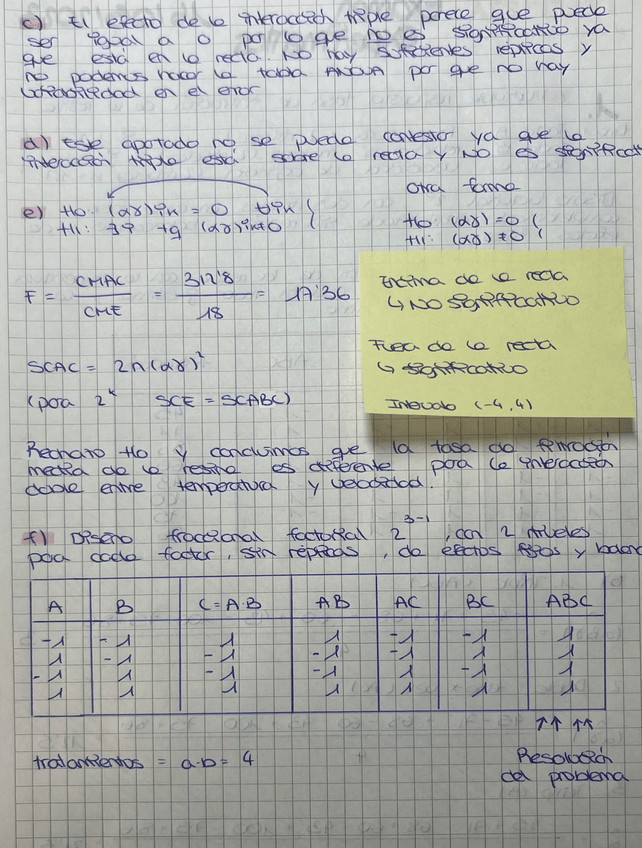 c) El efecto de la interacción triple parece que puede
ser igual a 0 por lo que no es significativo ya
que está en la recta. No hay suficientes réplicas y
no podemos hacer la tabla ANOVA por que no hay
variabilidad en el error
d) Este apartado no se puede contestar ya que la
interacción triple está sobre la recta y NO es significat
Otra forma
e) Ho: (αγ)ik = 0 ∀ik {
H1: ∃i tq (αγ)ik≠0 {
Ho: (αγ)=0 {
H1: (αγ)≠0 {
F = CMAC / CME = 312'8 / 18 = 17'36
SCAC = 2n(αγ)²
(para 2ᵏ SCE = SCABC)
Encima de la recta
↳ NO significativo
Fuera de la recta
↳ significativo
Intervalo (-4,4)
Rechazo Ho y concluimos que la tasa de filtración
media de la resina es diferente para la interacción
doble entre temperatura y velocidad.
f) Diseño fraccional factorial 2³⁻¹, con 2 niveles
para cada factor, sin réplicas, de efectos fijos y balanc
A B C=A·B AB AC BC ABC
-1 -1 1 1 -1 -1 1
1 -1 -1 -1 -1 1 1
-1 1 -1 -1 1 -1 1
1 1 1 1 1 1 1
↑↑ ↑↑
tratamientos = a·b = 4
Resolución
del problema